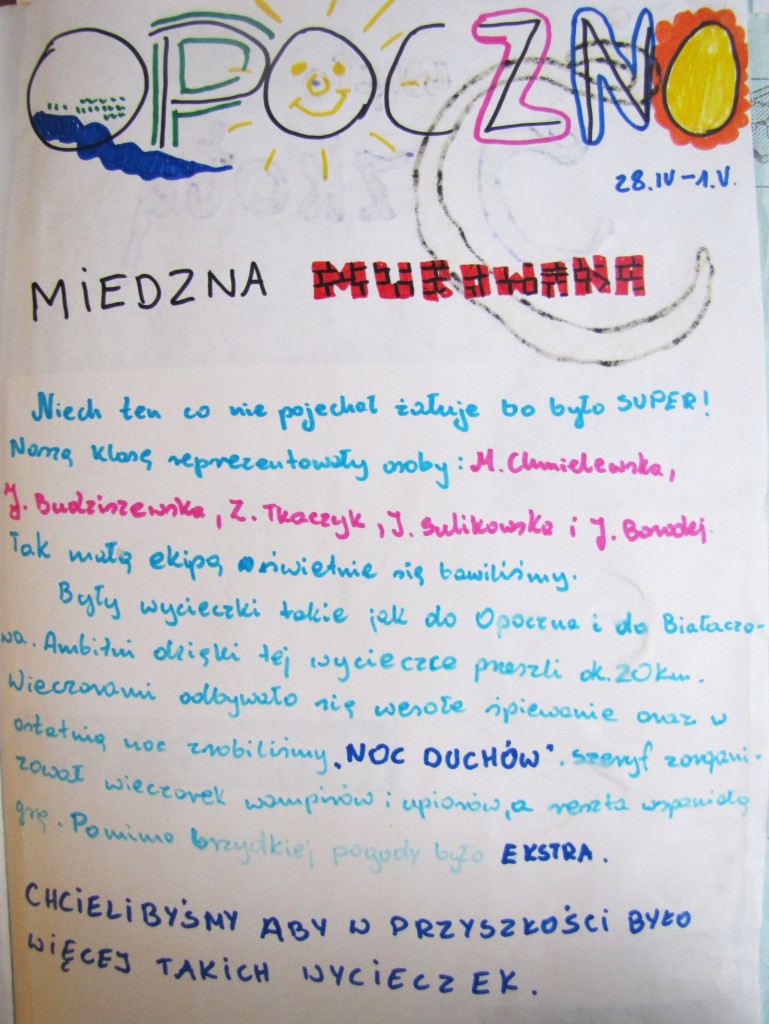 OPOCZNO
28.IV-1.V.
MIEDZNA MUROWANA
Niech ten co nie pojechał żałuje bo było SUPER!
Naszą klasę reprezentowały osoby: M. Chmielewska,
J. Budziszewska, Z. Tkaczyk, J. Sulikowska i J. Borodej.
Tak małą ekipą świetnie się bawiliśmy.
Były wycieczki takie jak do Opoczna i do Białaczo-
wa. Ambitni dzięki tej wycieczce przeszli ok. 20 km.
Wieczorami odbywało się wesołe śpiewanie oraz w
ostatnią noc zrobiliśmy „NOC DUCHÓW". Szeryf zorgani-
zował wieczorek wampirów i upiorów, a reszta wspaniałą
grę. Pomimo brzydkiej pogody było EKSTRA.
CHCIELIBYŚMY ABY W PRZYSZŁOŚCI BYŁO
WIĘCEJ TAKICH WYCIECZEK.